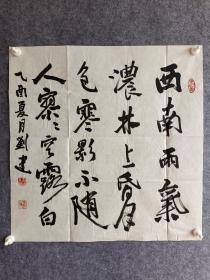 西南雨氣
濃林上昏月
色寒影不随
人寥々空露白
乙酉夏月劉建